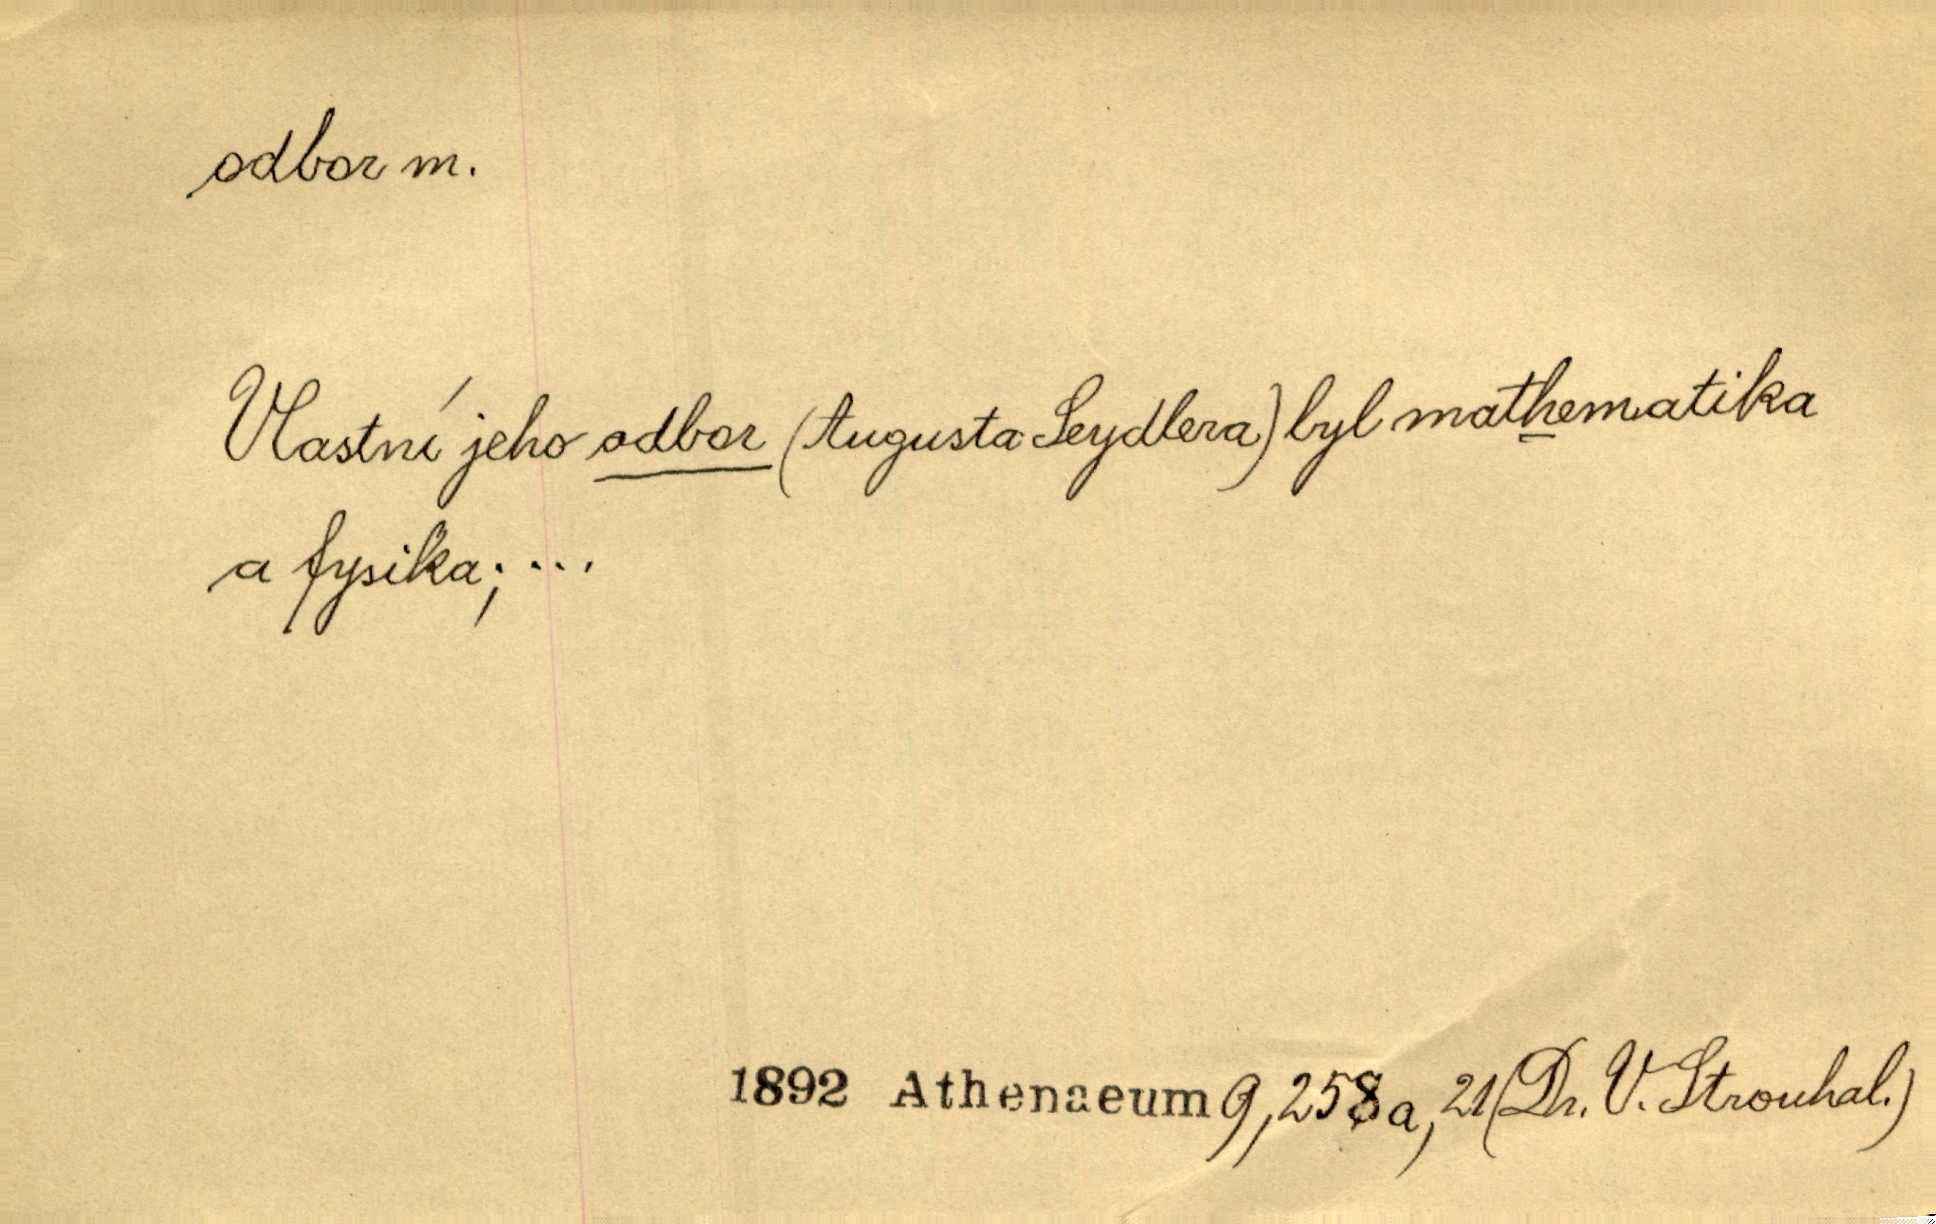 odbor m.
Vlastní jeho odbor (Augusta Seydlera) byl mathematika
a fysika; ...
1892 Athenaeum 9, 258a, 21 (Dr. V. Strouhal.)